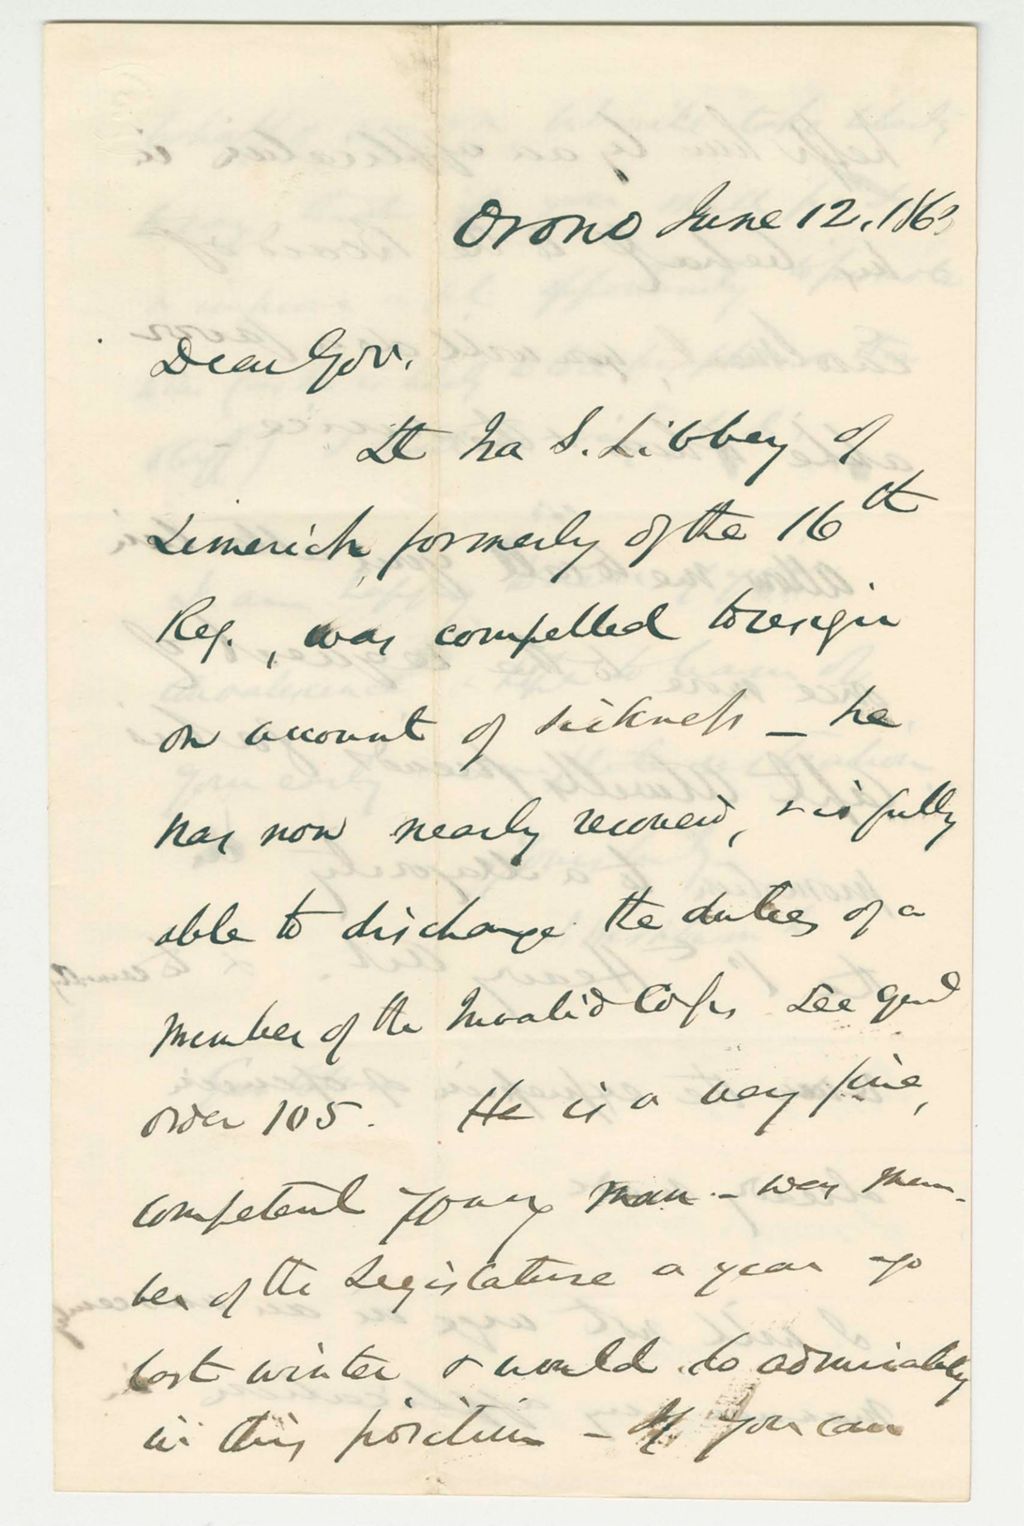 Orono June 12, 1863
Dear Gov.
Lt Ira S. Libbey of
Limerick, formerly of the 16th
Reg., was compelled to resign
on account of sickness – he
has now nearly recoverd, & is fully
able to discharge the duties of a
member of the Invalid Corps, See Genl
order 105. He is a very fine,
competent young man – was mem-
ber of the Legislature a year ago
last winter & would do admirably
in this position – If you can